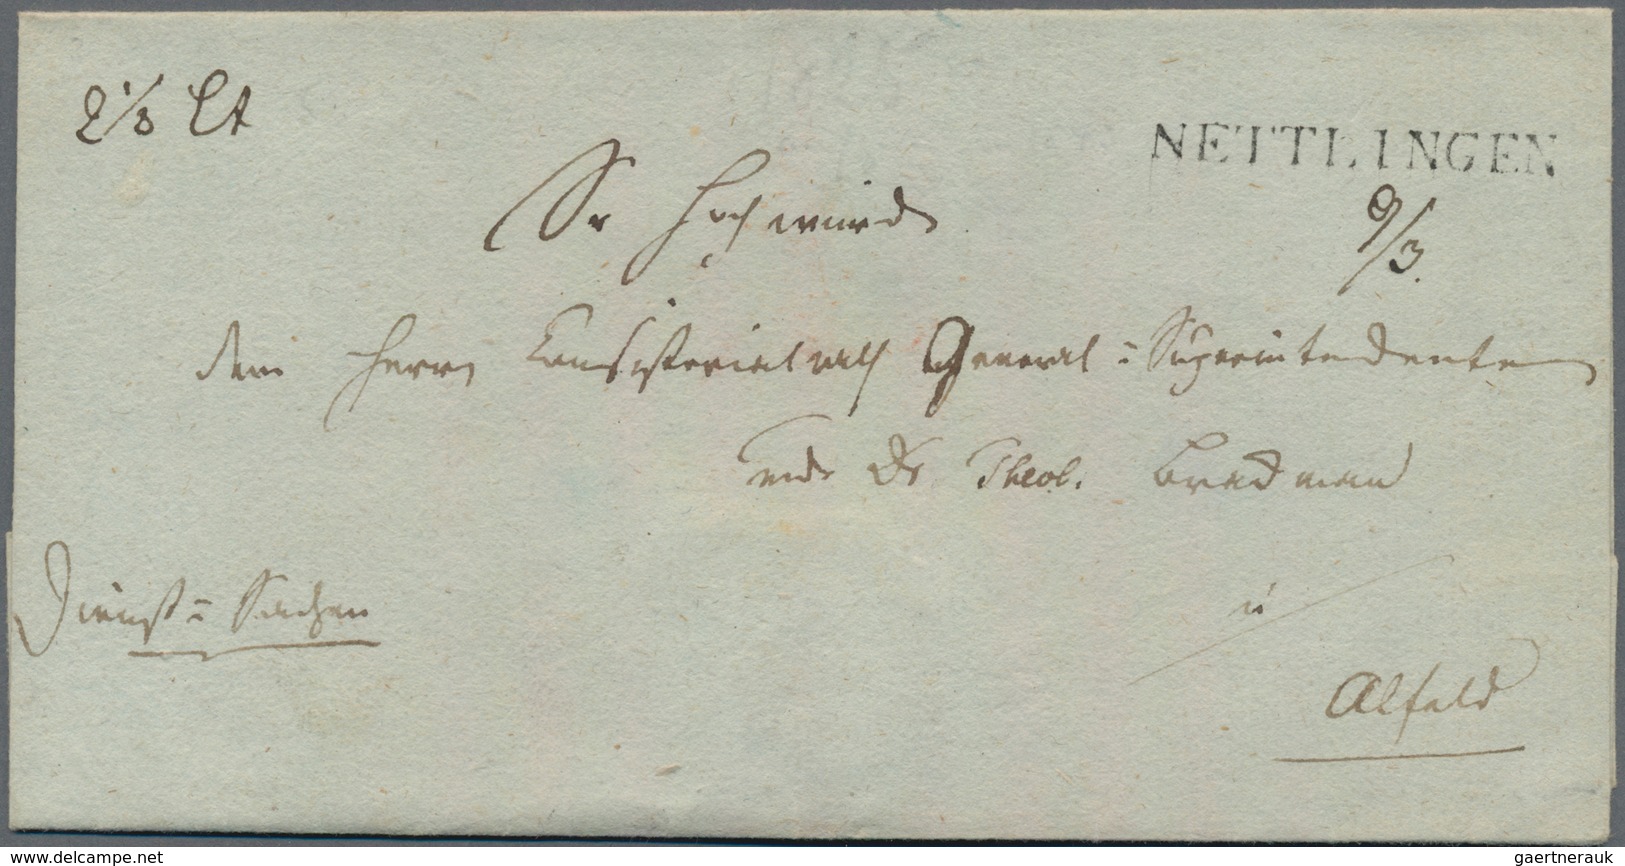 2 1/8 Lt
NETTLINGEN
9/3.
Sr Hochwürd
dem Herrn Consistorialrath General-Superintendenten
und Dr Theol.
Dienst-Sachen
in
Alfeld
www.delcampe.net
gaertnerauk